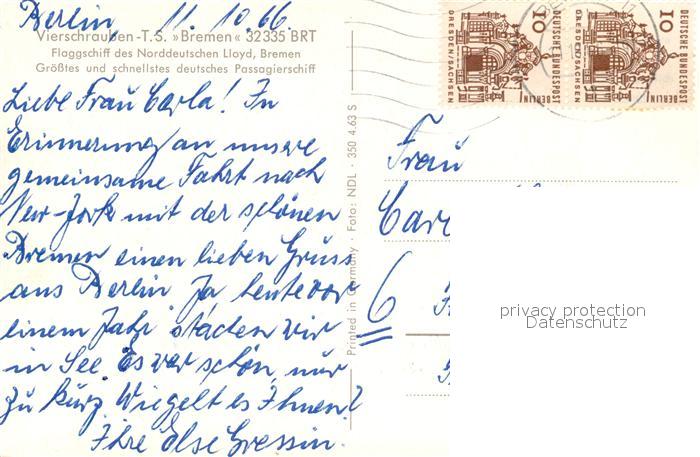 Berlin 11.10.66.
Vierschrauben-T.S. »Bremen« 32335 BRT
Flaggschiff des Norddeutschen Lloyd, Bremen
Größtes und schnellstes deutsches Passagierschiff
Liebe Frau Carla! In
Erinnerung an unsere
gemeinsame Fahrt nach
New-York mit der schönen
Bremen einen lieben Gruss
aus Berlin. Ja heute vor
einem Jahr stachen wir
in See. Es war schön, nur
zu kurz. Wie geht es Ihnen?
Ihre Else Gressin.
Printed in Germany · Foto: NDL · 350 4.63 S
10
DEUTSCHE BUNDESPOST
BERLIN
DRESDEN/SACHSEN
10
DEUTSCHE BUNDESPOST
BERLIN
DRESDEN/SACHSEN
Frau
Car
6
privacy protection
Datenschutz